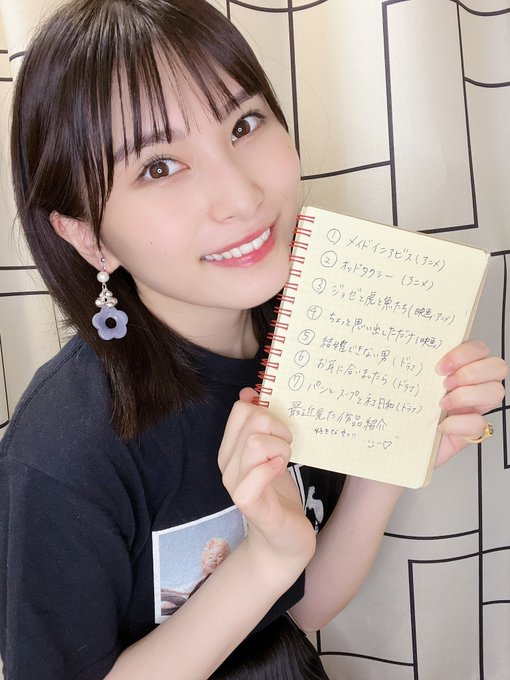 ① メイドインアビス(アニメ)
② オッドタクシー (アニメ)
③ ジョゼと虎と魚たち(映画,アニメ)
④ ちょっと思い出しただけ(映画)
⑤ 結婚できない男(ドラマ)
⑥ お耳に合いましたら(ドラマ)
⑦ パンとスープとネコ日和(ドラマ)
最近見た作品紹介
好きなやつ!!